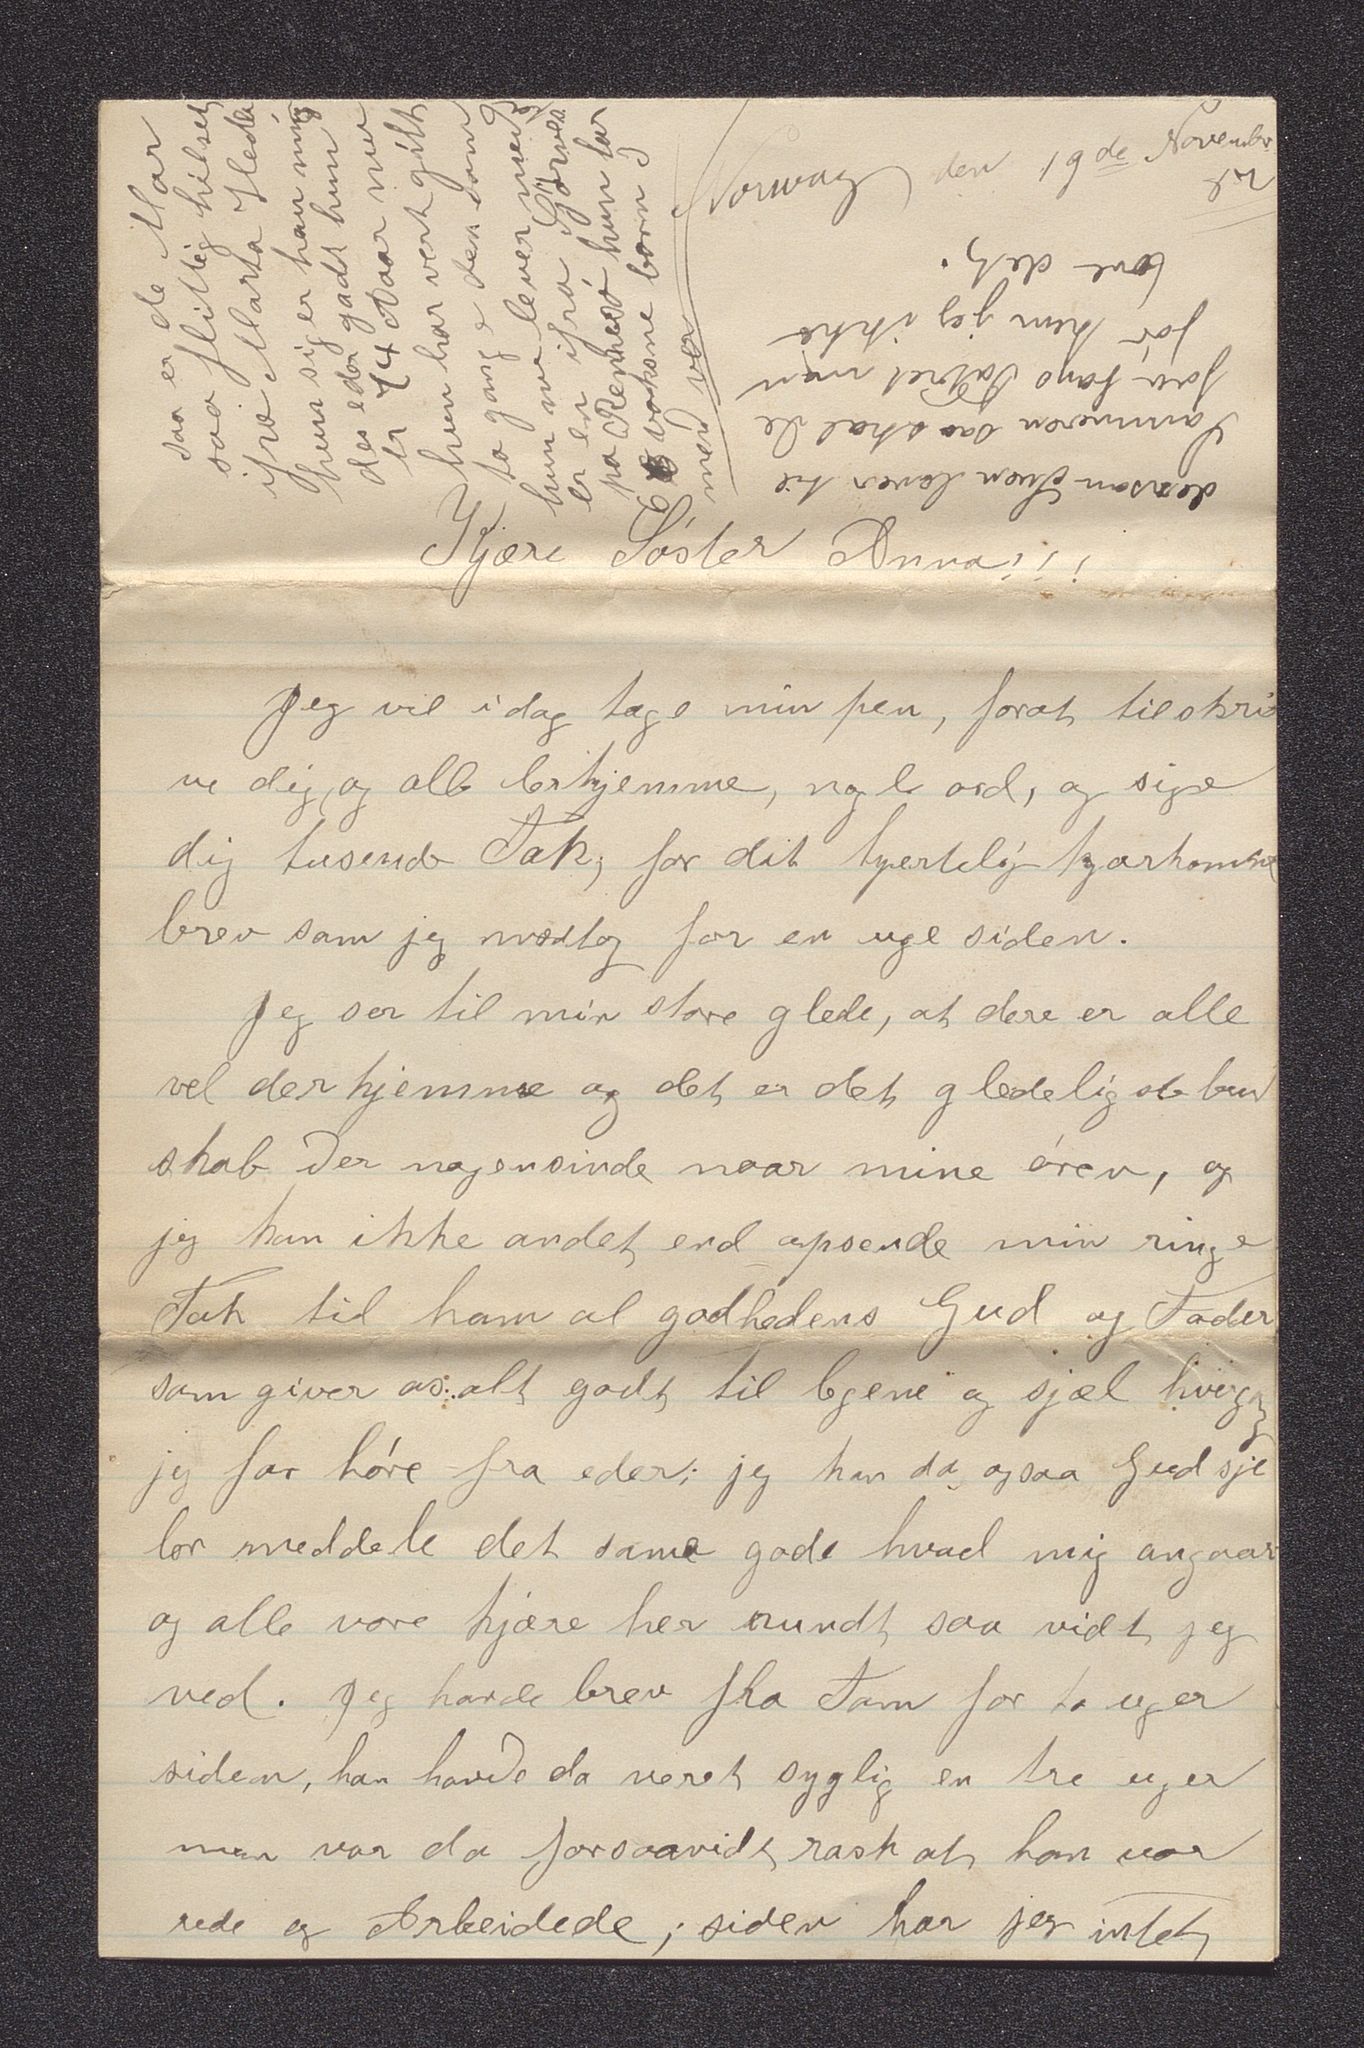 Norway Iowa den 19de November
Kjære Søster Anna!!!!
Jeg vil idag tage min pen, forat tilskri
ve dig, og alle derhjemme, nogle ord, og sige
dig tusende Tak, for dit hjertelig kjærkomne
brev som jeg modtog for en uge siden.
Jeg ser til min store glede, at dere er alle
vel derhjemme og det er det gledeligste bud
skab Der nogensinde naar mine ören, og
jeg kan ikke andet end opsende min ringe
Tak til ham al godhedens Gud og Fader
som giver os alt godt til legeme og sjæl hvergang
jeg faar höre fra eder; jeg kan da ogsaa Gud sje
lov meddele det same gode hvad mig angaar
og alle vore kjære her rundt saa vidt jeg
ved. Jeg havde brev fra Tom for to uger
siden, han havde da veret syglig en tre uger
men var da forsaavidt rask at han var
rede og Arbeidede; siden har jeg intet
saa er de Mar
saa flittig hilset
ifra Marta Hleda
hun sig er han mig
des eder godt hun
er 74 Aar nu
hun har vert gift
to gang e den som
hun nu lever med
er en ifra Sörves
pa Rennesö hun har
2 voksne börn i
mer ver
dersom Sven lever til
Sammeren saa skal de
faa hans Potret men
för kan jeg ikke
love det.